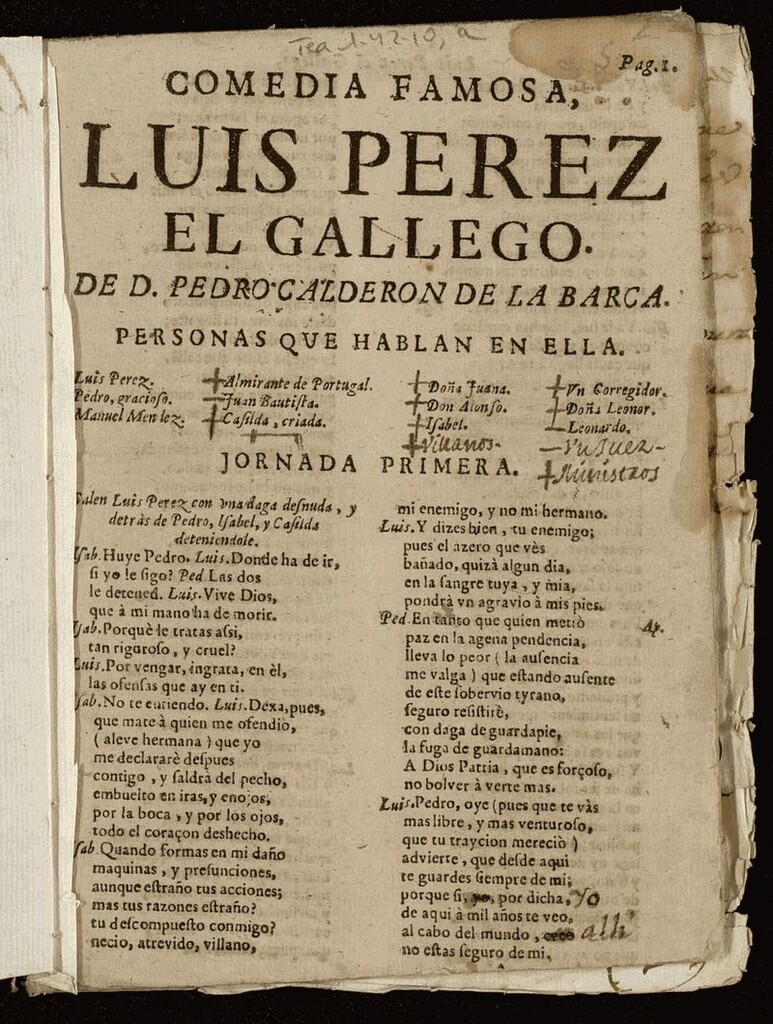 Tea 1-42-10, a
Pag.1.
COMEDIA FAMOSA,
LUIS PEREZ
EL GALLEGO.
DE D. PEDRO CALDERON DE LA BARCA.
PERSONAS QVE HABLAN EN ELLA.
Luis Perez.
Pedro, gracioso.
Manuel Mendez.
Almirante de Portugal.
Juan Bautista.
Casilda, criada.
Doña Juana.
Don Alonso.
Isabel.
Villanos.
Vn Corregidor.
Doña Leonor.
Leonardo.
Vn Juez
Ministros
JORNADA PRIMERA.
Salen Luis Perez con vna daga desnuda, y
detràs de Pedro, Isabel, y Casilda
deteniendole.
Isab. Huye Pedro. Luis. Donde ha de ir,
si yo le sigo? Ped. Las dos
le detened. Luis. Vive Dios,
que à mi mano ha de morir.
Isab. Porquè le tratas assi,
tan riguroso, y cruel?
Luis. Por vengar, ingrata, en èl,
las ofensas que ay en ti.
Isab. No te entiendo. Luis. Dexa, pues,
que mate à quien me ofendiò,
( aleve hermana ) que yo
me declararè despues
contigo, y saldrà del pecho,
embuelto en iras, y enojos,
por la boca, y por los ojos,
todo el coraçon deshecho.
Isab. Quando formas en mi daño
maquinas, y presunciones,
aunque estraño tus acciones;
mas tus razones estraño?
tu descompuesto conmigo?
necio, atrevido, villano,
mi enemigo, y no mi hermano.
Luis. Y dizes bien, tu enemigo;
pues el azero que vès
bañado, quizà algun dia,
en la sangre tuya, y mia,
pondrà vn agravio à mis pies.
Ped. En tanto que quien metiò Ap.
paz en la agena pendencia,
lleva lo peor ( la ausencia
me valga ) que estando ausente
de este sobervio tyrano,
seguro resistirè,
con daga de guardapie,
la fuga de guardamano:
A Dios Patria, que es forçoso,
no bolver à verte mas.
Luis. Pedro, oye (pues que te vàs
mas libre, y mas venturoso,
que tu traycion mereciò )
advierte, que desde aqui
te guardes siempre de mi;
porque si, yo, por dicha, Yo
de aqui à mil años te veo,
al cabo del mundo, alli
no estas seguro de mi,